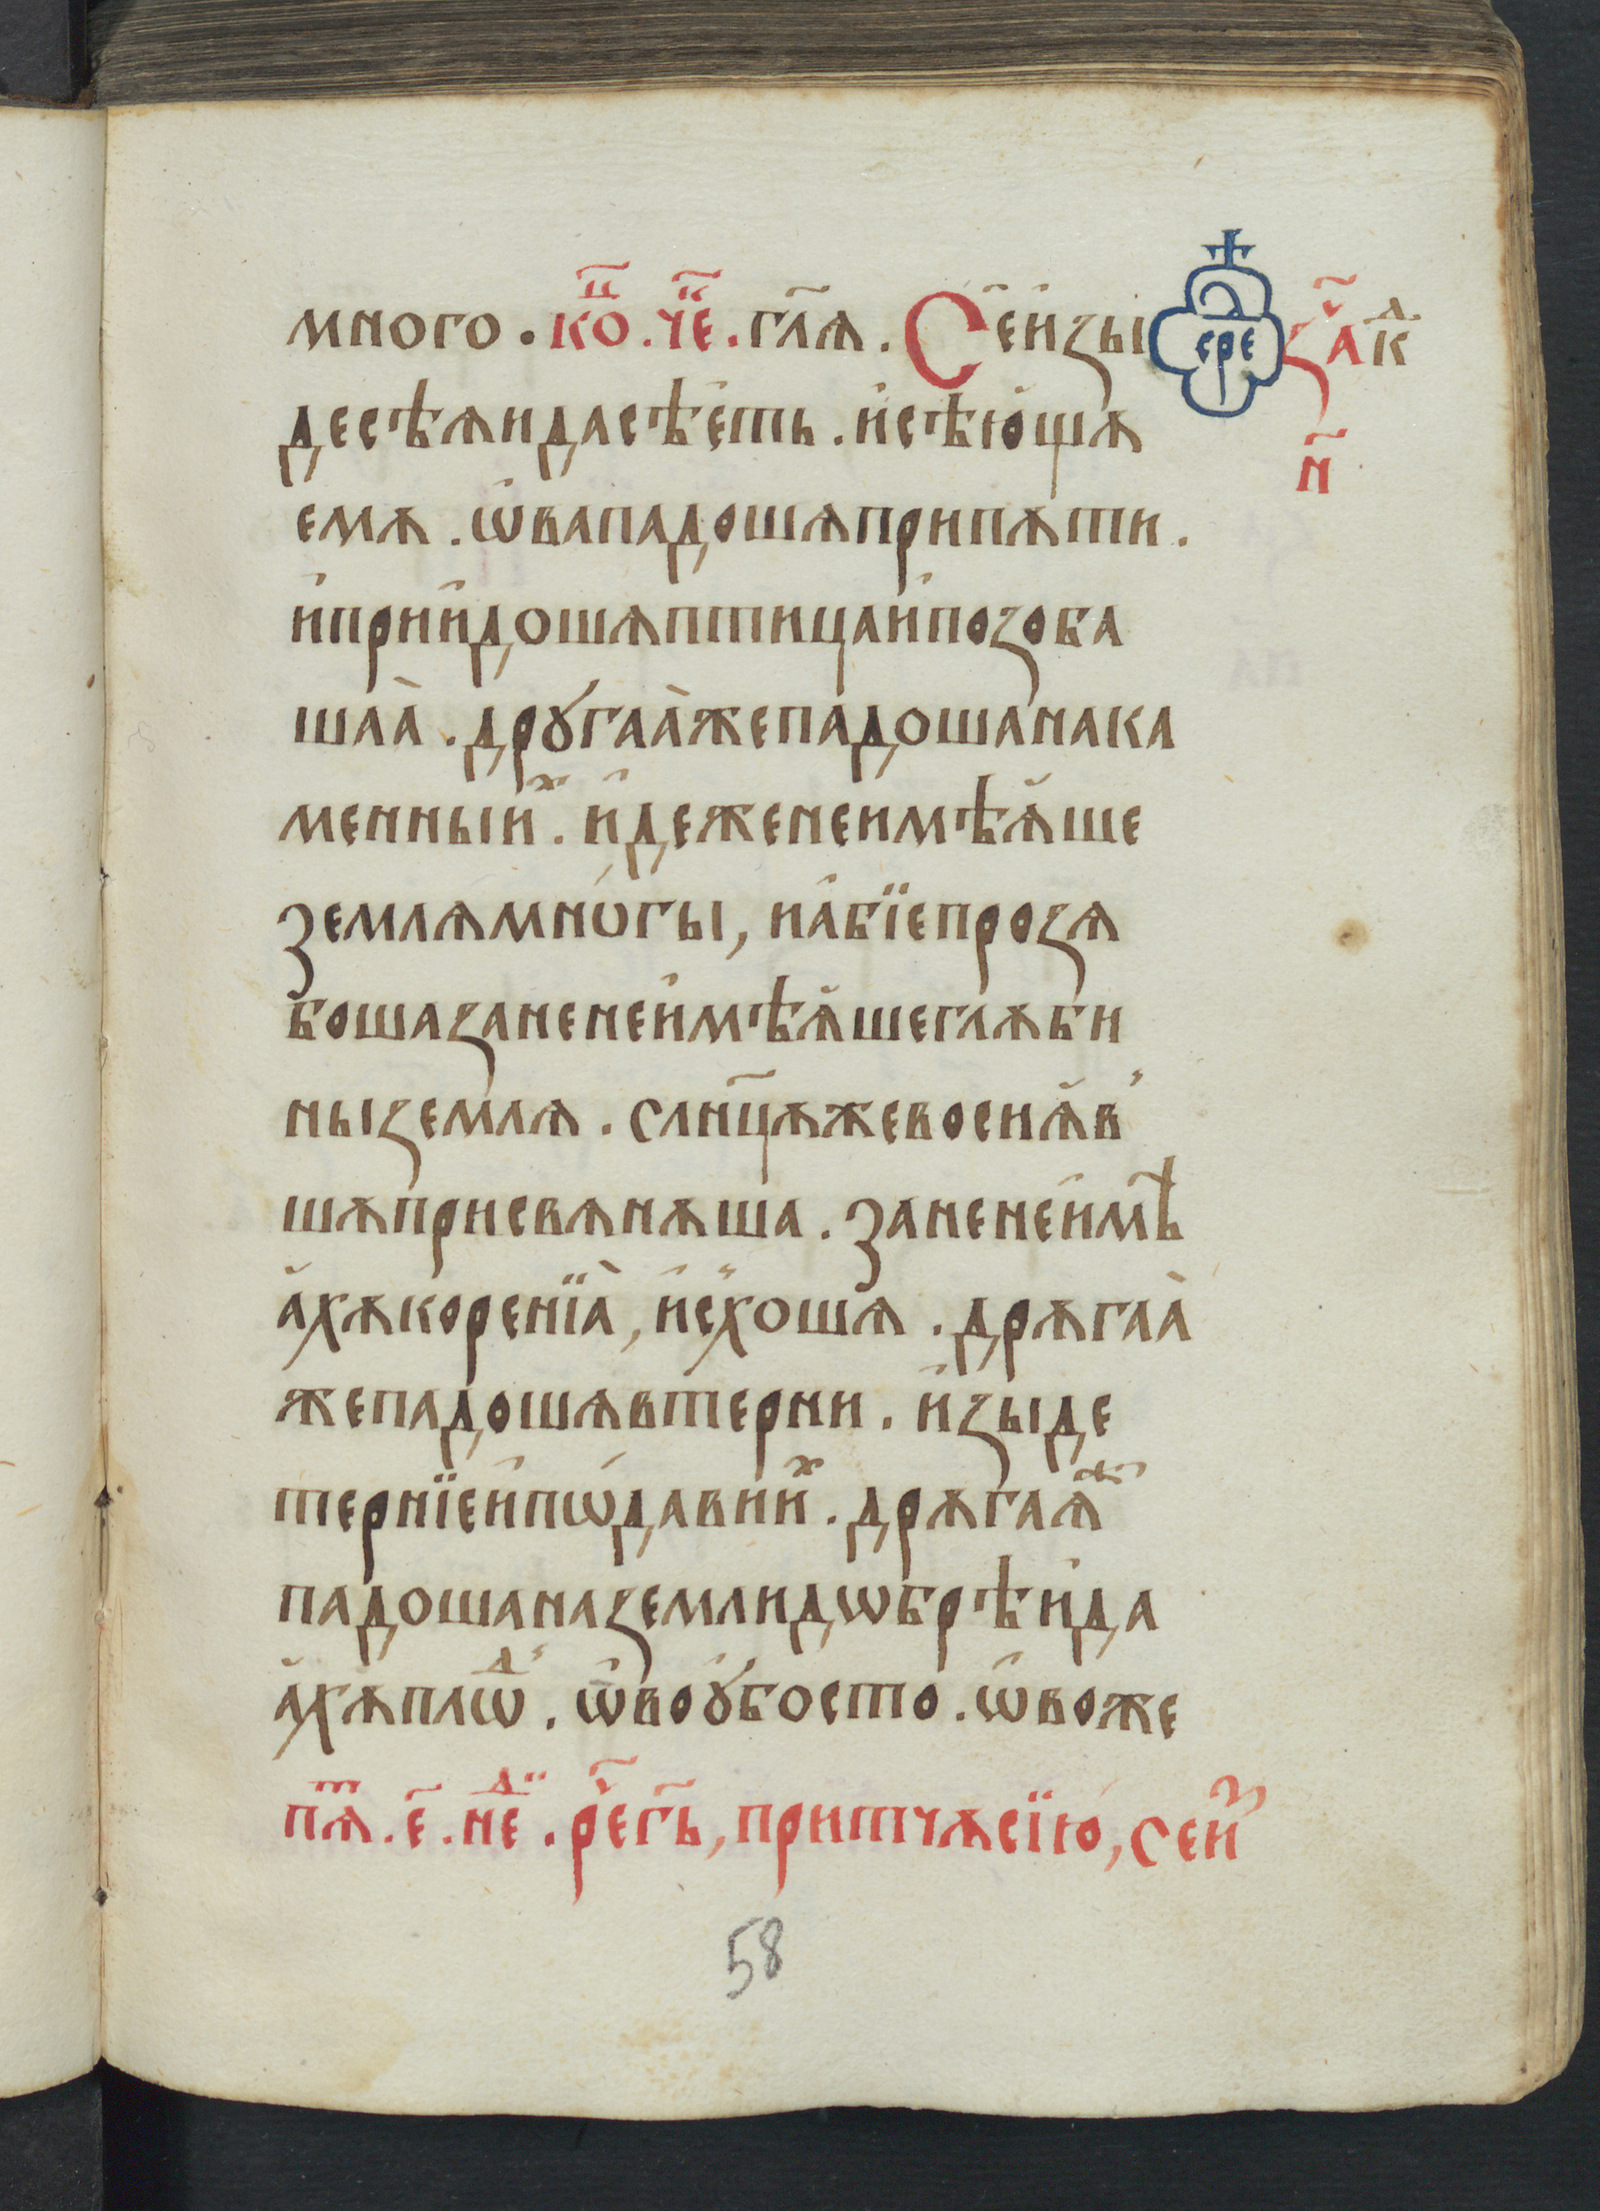 много . ко҃ⷰ҇ . че҃ⷦ҇ . гл҃ѧ . Се҆и҆зы ере за҃ч кⷣ
десѣѧидасѣ҆еть . и҆сѣю҆щѫ н҃
емѫ . ѡ҆вападошѧприпѫти .
и҆прии҆дошѫптицаи҆позоба
шаа̀ . дрꙋ́гаа̀жепадошанака
менныи҆ⷯ . и҆деженеимѣѧ҆ше
землѧмно́гы , иа҆бїепрозѧ
бошазаненеи҆мѣѧ҆шеглѫби
ныземлѧ . слн҃цѫжевосиѧ҆в
шѫприсвѧнѫша . Заненеи҆мѣ
а҆хѫкоренїа̀ , и҆сх̾ошѧ . дрѫгаа̀
жепадошѧвтерни . и҆зыде
тернїеи҆пѡ́давии҆ⷯ . дрѫгаѧⷤ҆
падошаназемлидѡбрѣи҆да
а҆хѫплѡⷣ . ѡ҆воꙋ҆босто . ѡ҆воже
пѧ҃ⷮ . е҃ . не҃ⷣ . ре҃гъ , притчѫсїю , сеи҆ⷥ
58